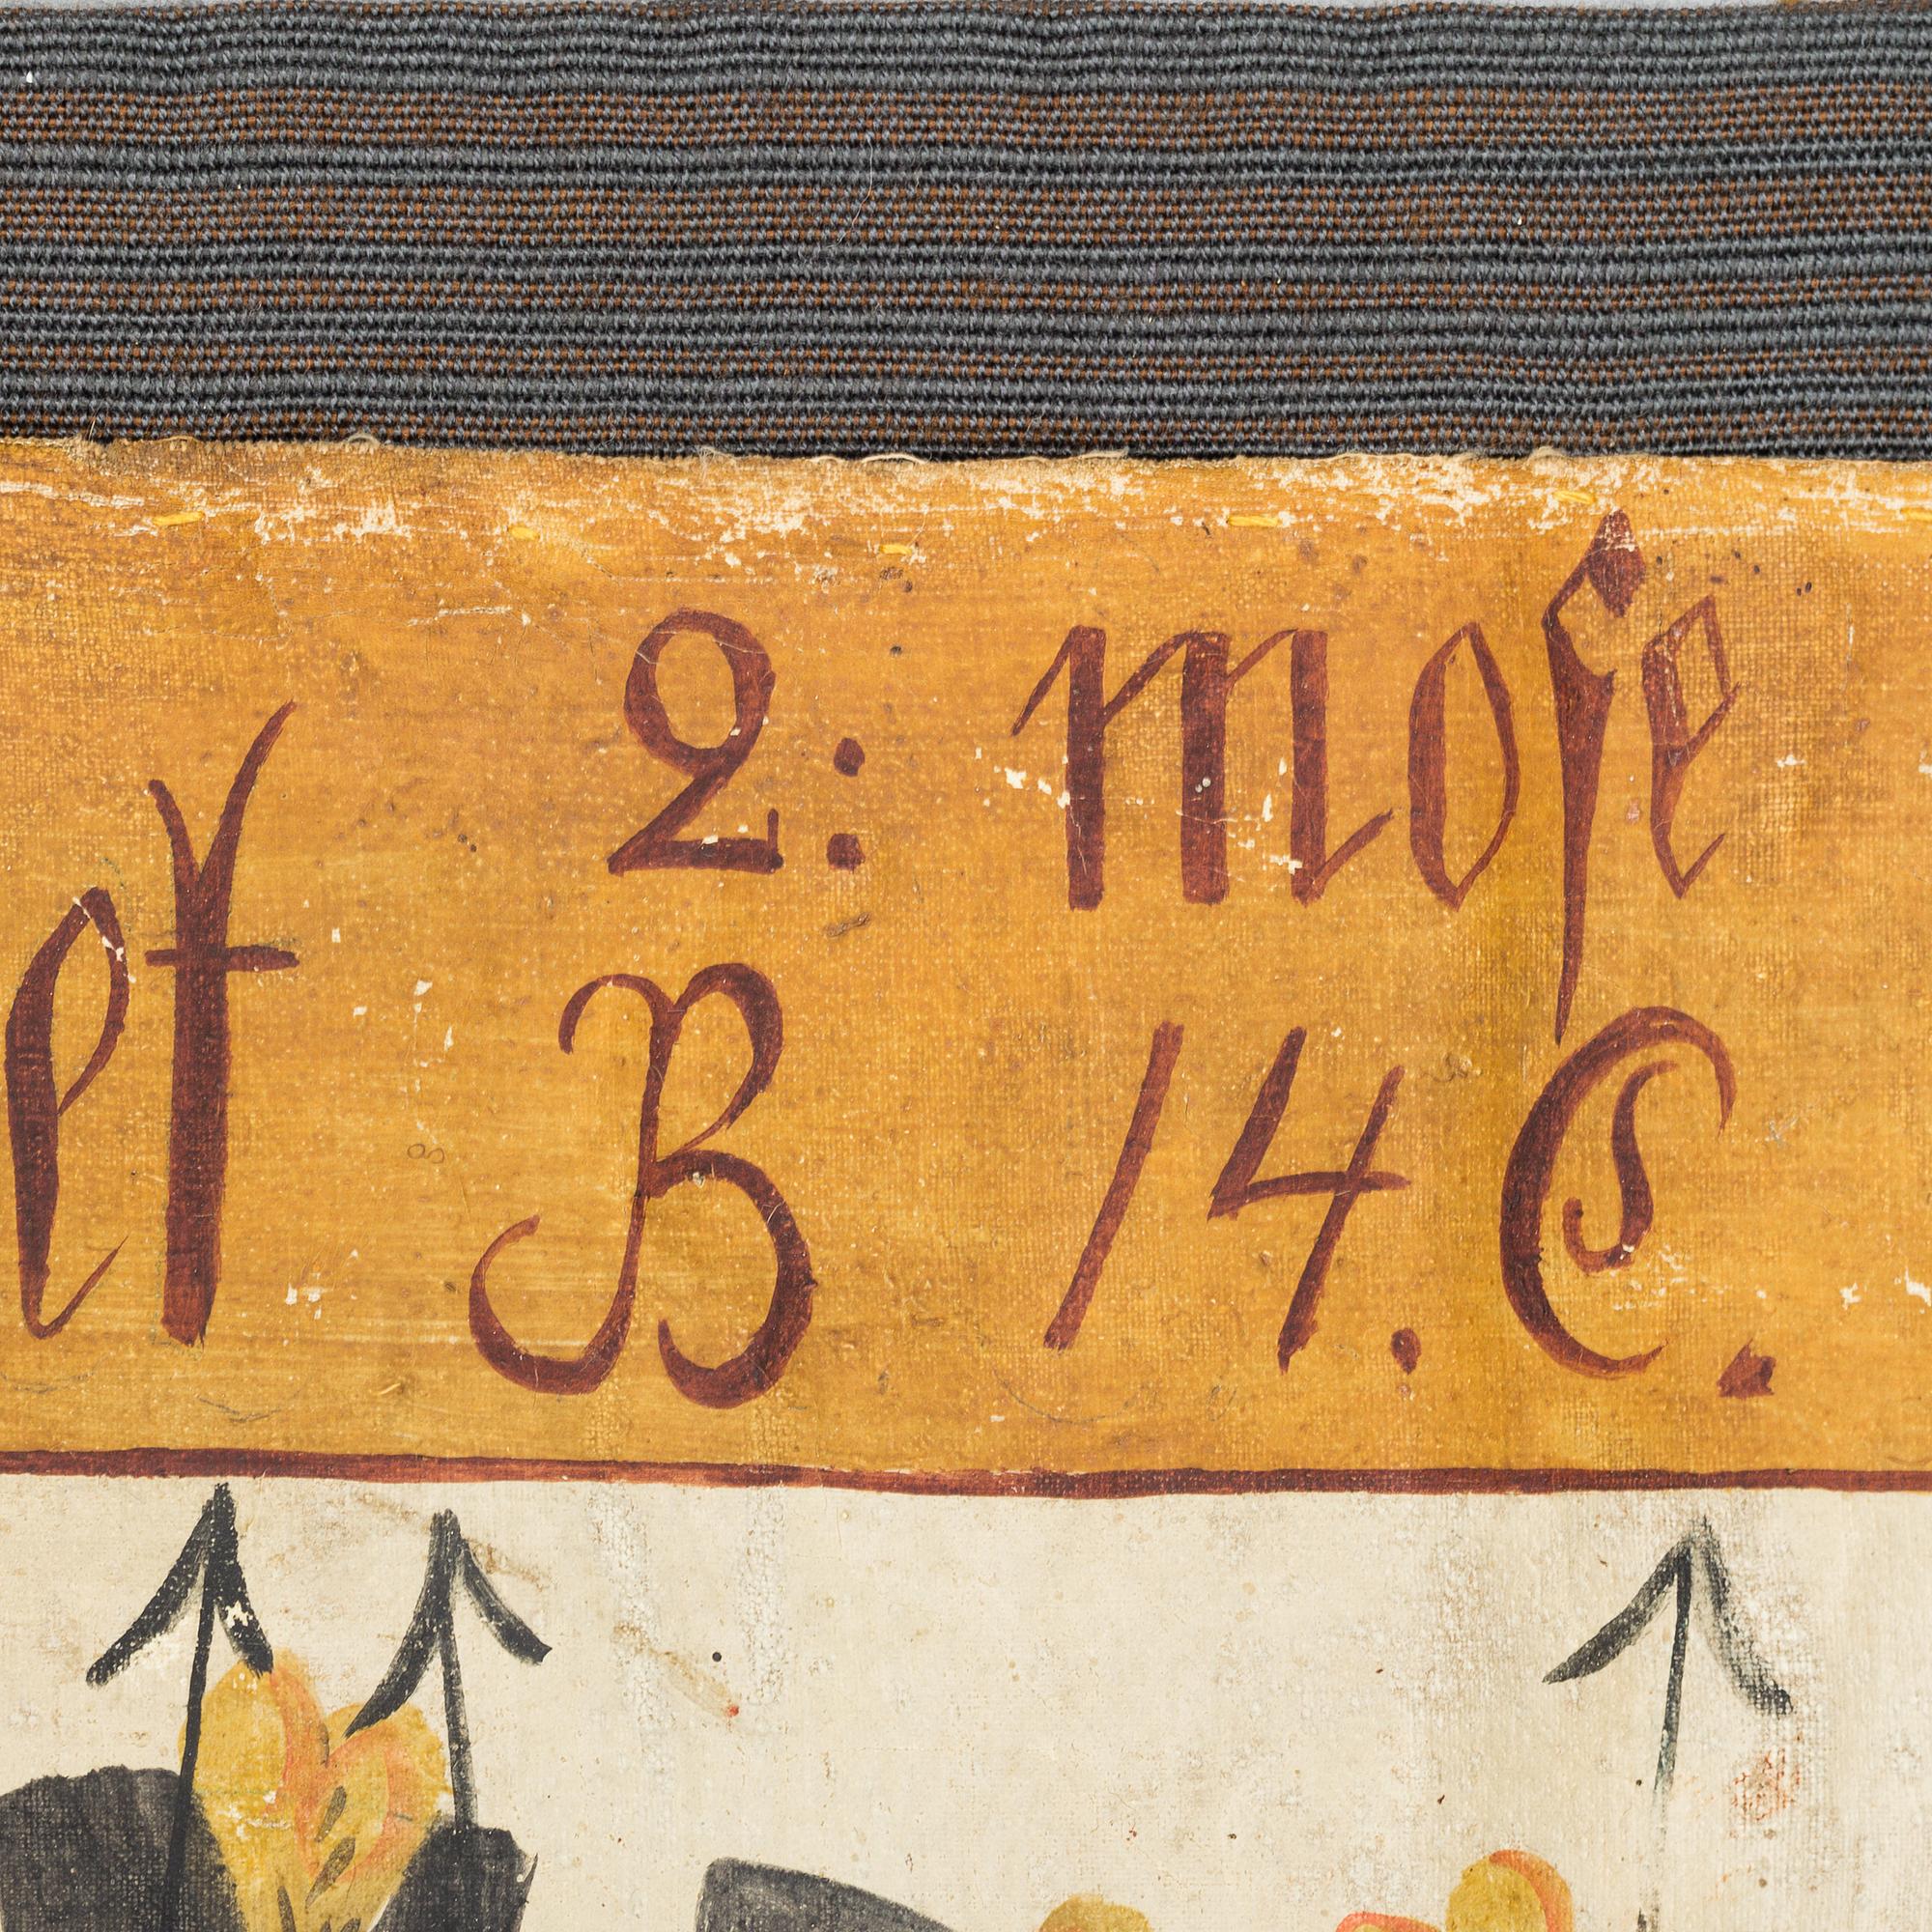 2: mose
et B 14. C.